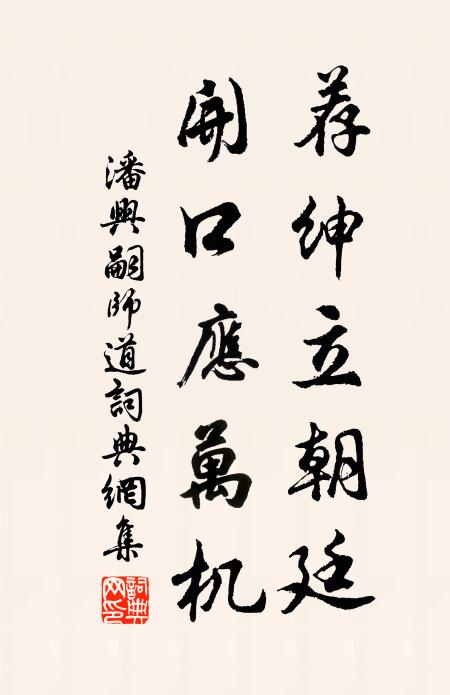 荐绅立朝廷
開口應萬机
潘興嗣師道詞典網集
詞典网印